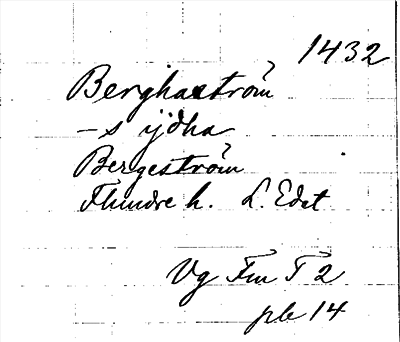 1432
Berghaström
-s ijdha
Bergeström
Flundre h. L. Edet
Vg Fm T 2
plb 14